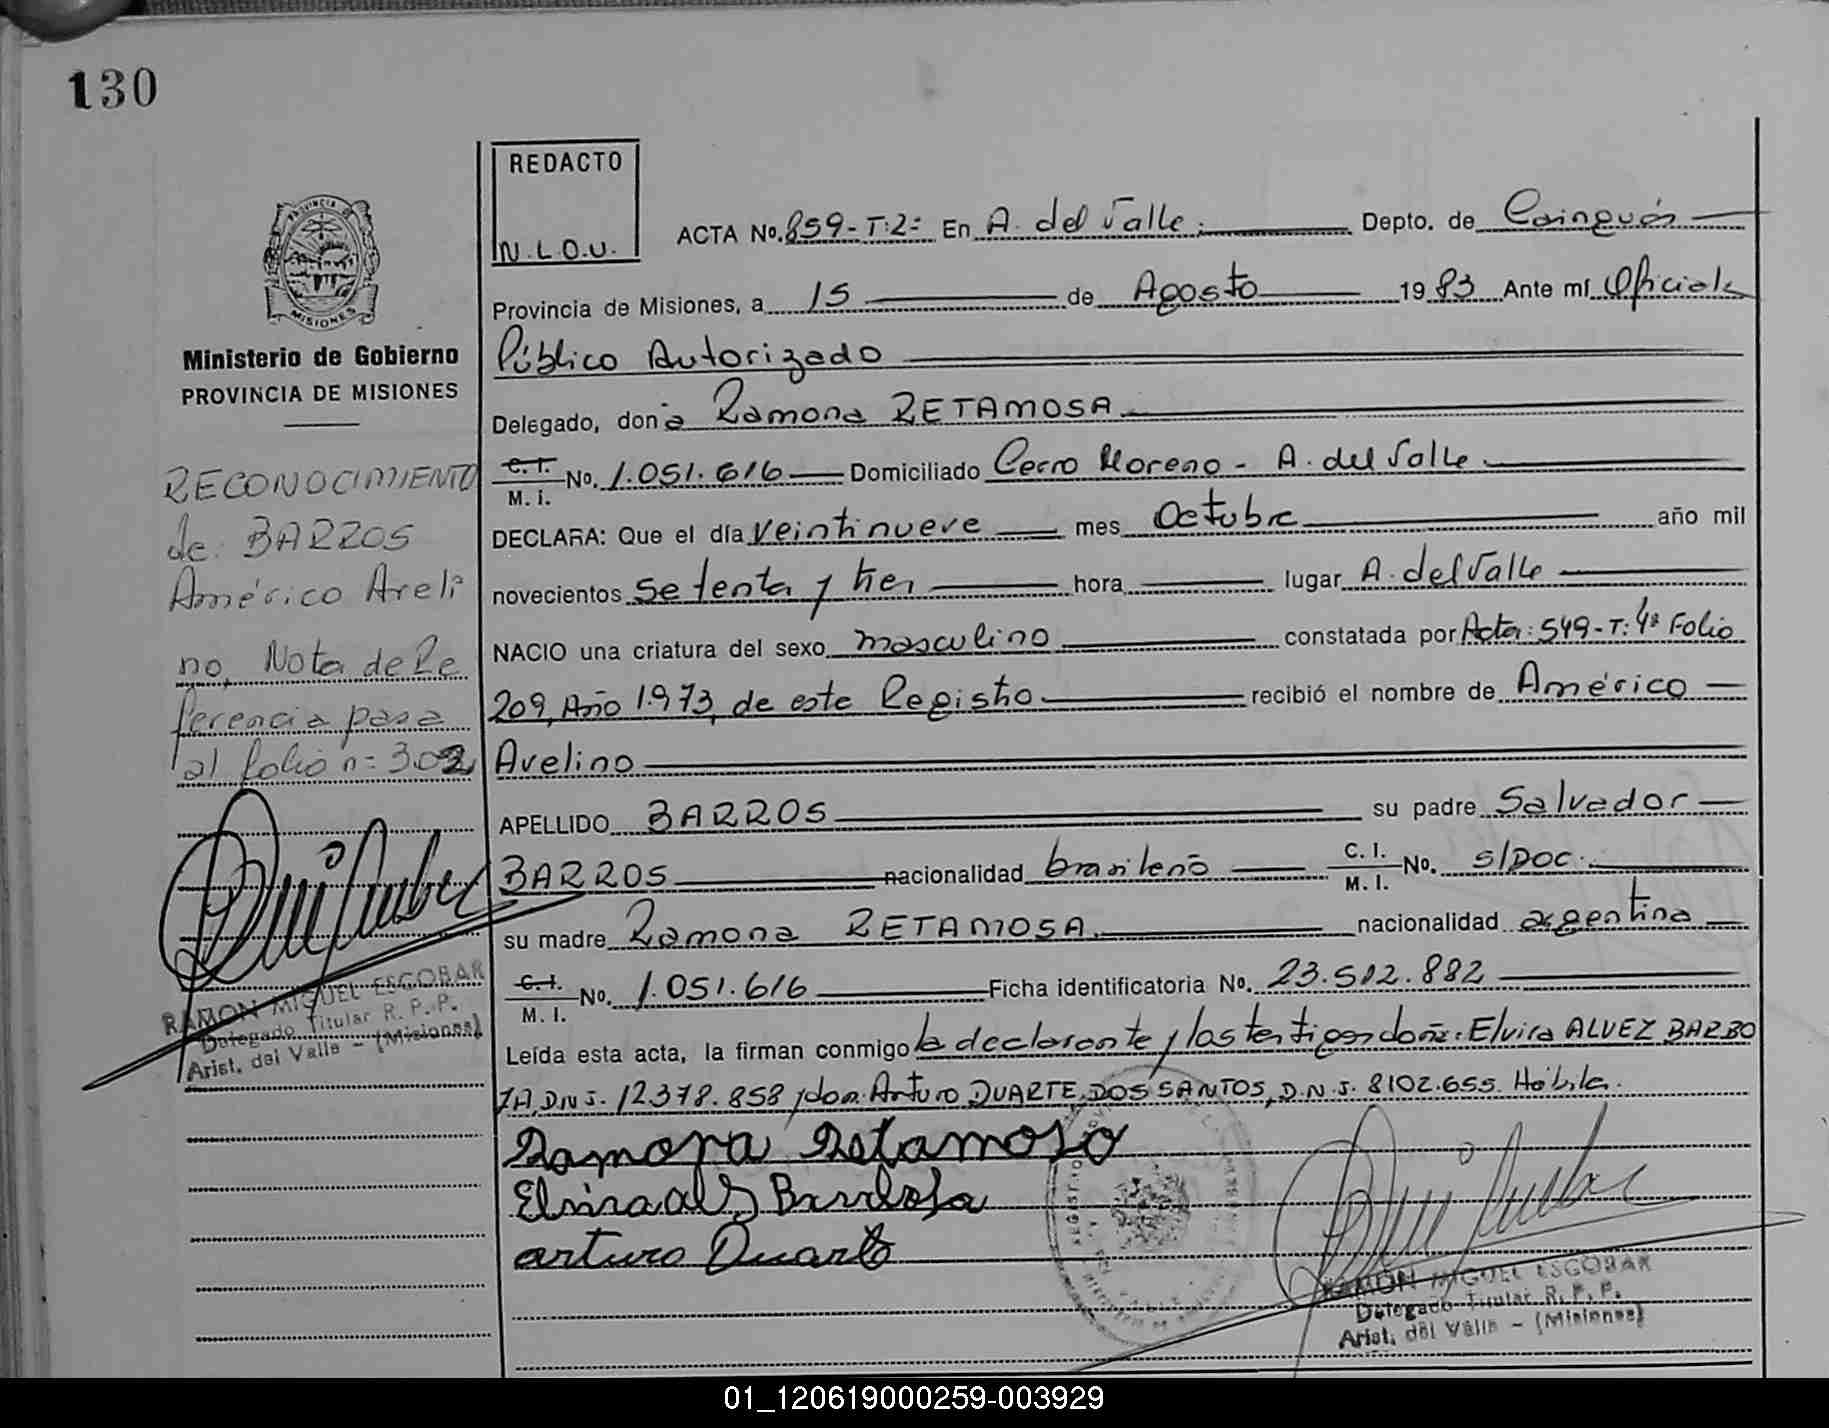 130
REDACTO
N.L.O.U.
ACTA No. 859-T:2= En A. del Valle. Depto. de Cainguás
Provincia de Misiones, a 15 de Agosto 1983 Ante mí Oficiala
Público Autorizado
Delegado, doña Ramona RETAMOSA
C. I. M. I. No. 1.051.616 Domiciliado Cerro Moreno - A. del Valle
DECLARA: Que el día veintinueve mes Octubre año mil
novecientos setenta y tres hora lugar A. del Valle
NACIO una criatura del sexo masculino constatada por Acta: 549-T: 4ª Folio
209, Año 1.973, de este Registro recibió el nombre de Américo
Avelino
APELLIDO BARROS su padre Salvador
BARROS nacionalidad brasileño C. I. M. I. No. s/Doc.
su madre Ramona RETAMOSA. nacionalidad argentina
C. I. M. I. No. 1.051.616 Ficha identificatoria No. 23.512.882
Leída esta acta, la firman conmigo la declarante y los testigos doña: Elvira ALVEZ BARBO
ZA, D.N.I. 12.378.858 y don Arturo DUARTE DOS SANTOS, D.N.I. 8102.655. Hábiles.
Ramona Retamoso
Elvira Barbosa
arturo Duarte
RAMON MIGUEL ESCOBAR
Delegado Titular R. P. P.
Arist. del Valle - (Misiones)
PROVINCIA DE
MISIONES
Ministerio de Gobierno
PROVINCIA DE MISIONES
RECONOCIMIENTO
de: BARROS
Américo Aveli
no, Nota de Re
ferencia pasa
al folio n= 302
RAMON MIGUEL ESCOBAR
Delegado Titular R. P. P.
Arist. del Valle - (Misiones)
01_120619000259-003929